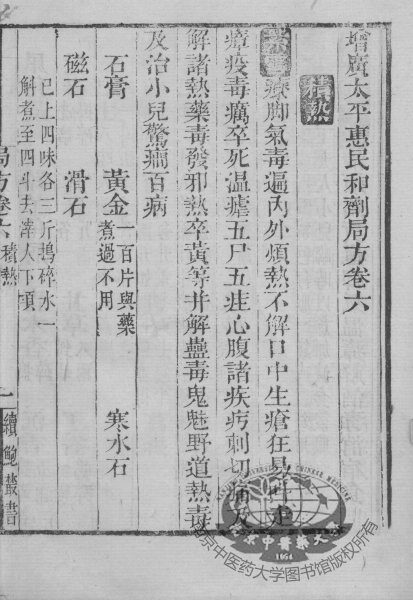 增廣太平惠民和劑局方卷六
積熱
紫雪療脚氣毒遍內外煩熱不解口中生瘡狂叫走
瘴疫毒癘卒死温瘧五尸五疰心腹諸疾㽲刺切痛及
解諸熱藥毒發邪熱卒黃等并解蠱毒鬼魅野道熱毒
及治小兒驚癎百病
石膏 黃金一百片與藥煮過不用 寒水石
磁石 滑石
已上四味各三斤搗碎水一
斛煮至四斗去滓入下項
局方卷六 積熱
一 續鮑叢書
NANJING UNIVERSITY OF CHINESE MEDICINE
南京中醫藥大學
1954
南京中医药大学图书馆版权所有